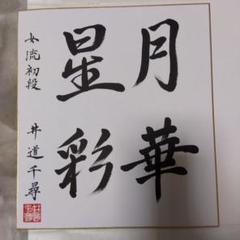 月華
星彩
女流初段
井道千尋